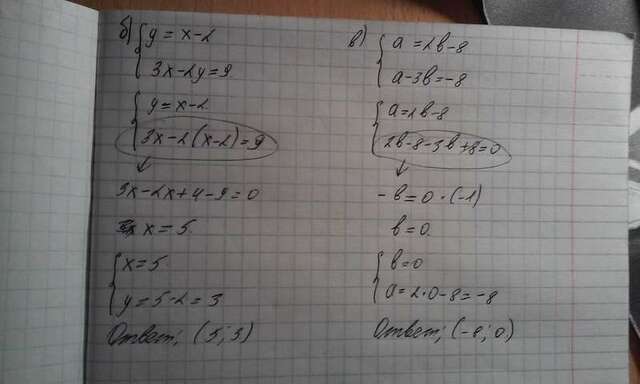 б) { y = x - 2
3x - 2y = 9
{ y = x - 2
3x - 2(x - 2) = 9
3x - 2x + 4 - 9 = 0
x = 5
{ x = 5
y = 5 - 2 = 3
Ответ: (5; 3)
в) { a = 2b - 8
a - 3b = -8
{ a = 2b - 8
2b - 8 - 3b + 8 = 0
-b = 0 · (-1)
b = 0
{ b = 0
a = 2·0 - 8 = -8
Ответ: (-8; 0)